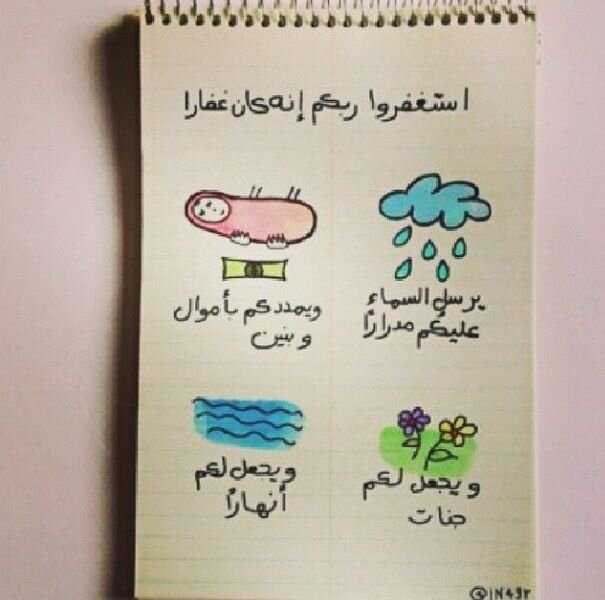 استغفروا ربكم إنه كان غفارا
يرسل السماء
عليكم مدرارًا
ويمددكم بأموال
وبنين
ويجعل لكم
جنات
ويجعل لكم
أنهارًا